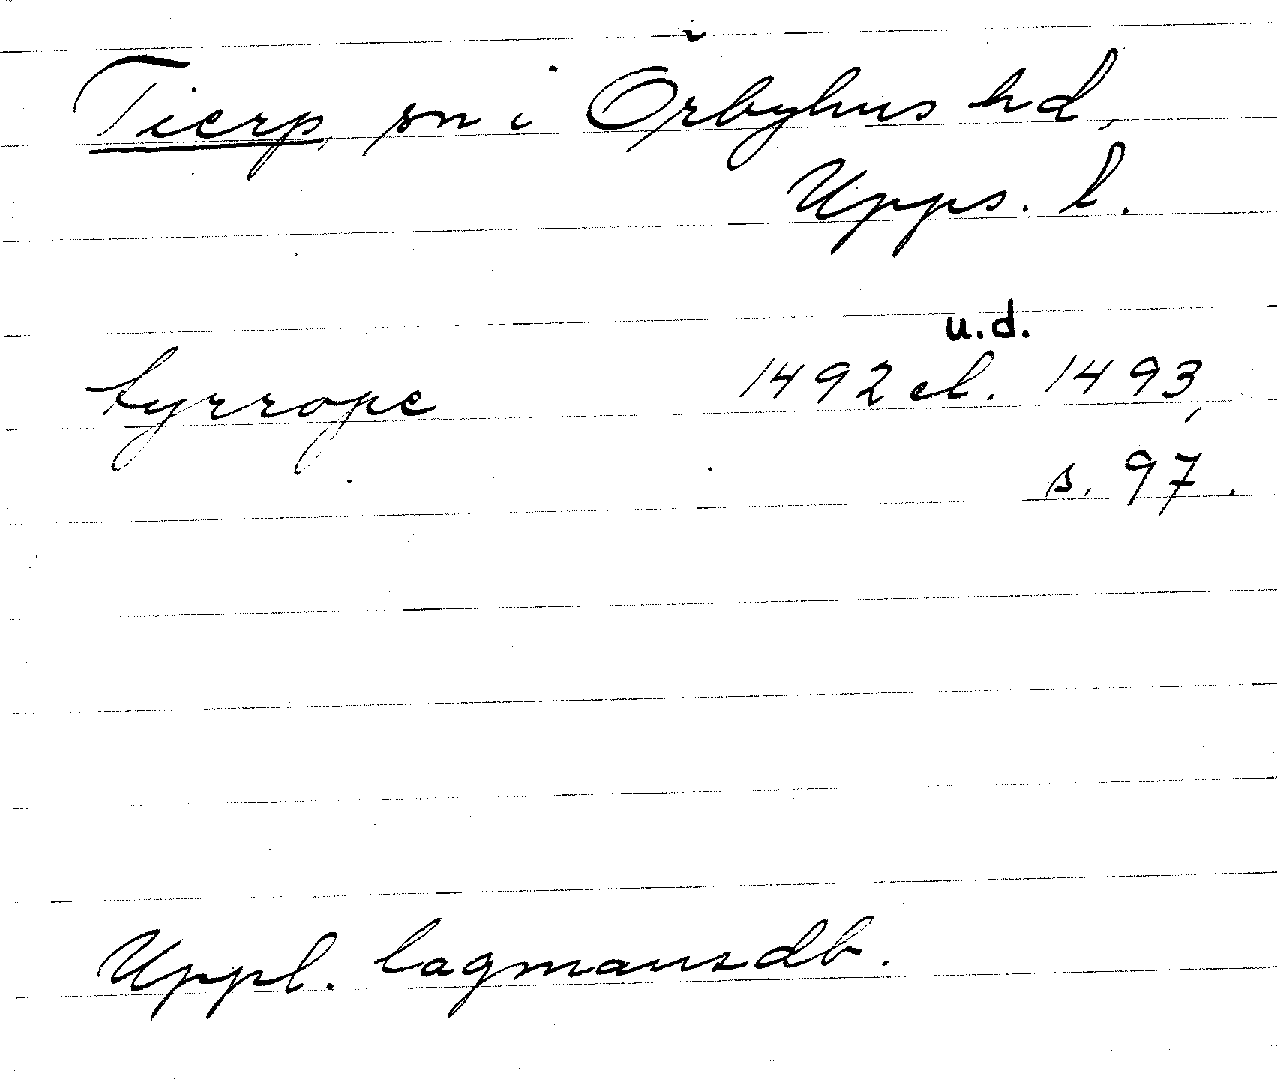 Tierp, sn i Örbyhus hd,
Upps. l.
u.d.
tyrrope 1492 el. 1493,
s. 97.
Uppl. lagmansdb.